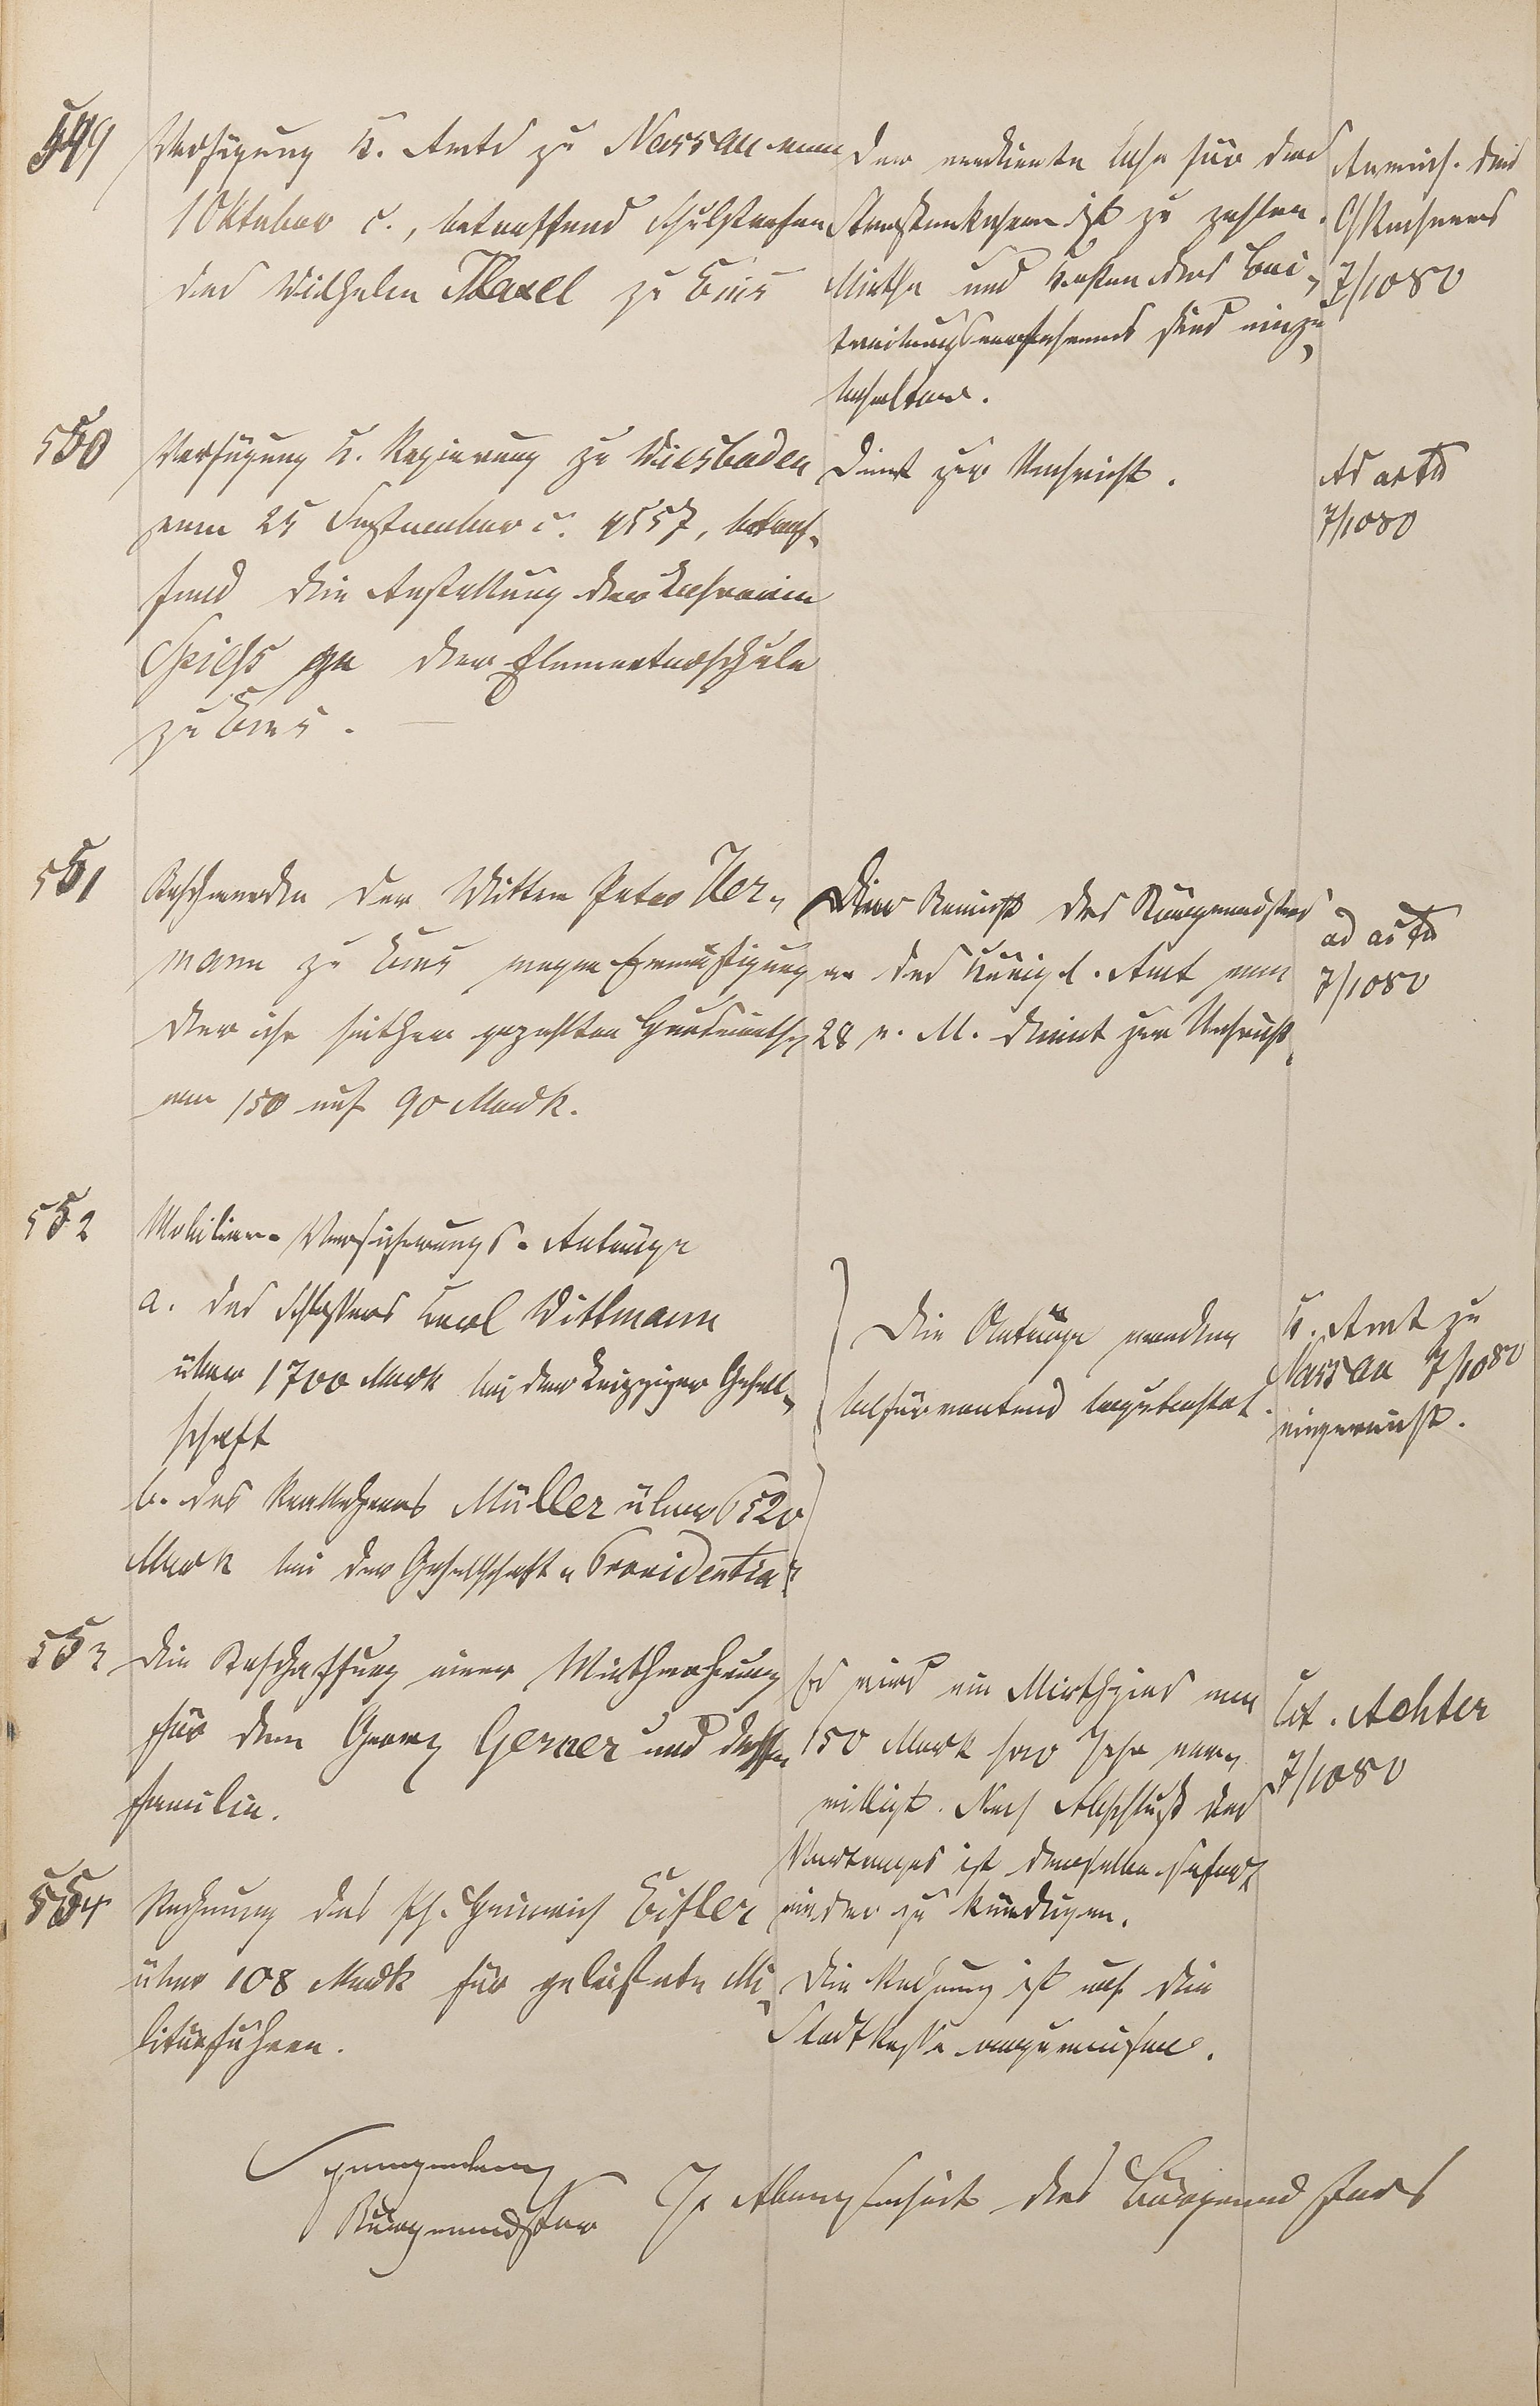 549
Verfügung K. Amts zu Nassau vom
1 Oktober c., betreffend Schulstrafen
des Wilhelm Maxel zu Ems
Der verdiente Lohn für das
ist zu zahlen.
Miethe und Kosten des Bei-
treibungsverfahrens sind einzu-
behalten.
Anweis. des
Rechners
7/10 80
550
Verfügung K. Regierung zu Wiesbaden
vom 25 September c. 4557, betref-
fend die Anstellung der Lehrerin
Spiess an der Elementarschule
zu Ems.
Dient zur Nachricht.
Ad acta
7/10 80
551
Beschwerde der Wittwe Peter Her-
mann zu Ems wegen Ermäßigung
der ihr seither gezahlten
von 150 auf 90 Mark.
Der Bericht des Bürgermeisters
an das Königl. Amt vom
28 v. M. dient zur Nachricht.
ad acta
7/10 80
552
Mobiliar-Versicherungs-Anträge
a. des Schlossers Karl Wittmann
über 1700 Mark bei der Leipziger Gesell-
schaft
b. des Müller über 6520
Mark bei der Gesellschaft „Providentia"
Die Anträge werden
befürwortend begutachtet.
K. Amt zu
Nassau 7/10 80
eingereicht.
553
Die Beschaffung einer Miethwohnung
für den Georg Gerner und dessen
Familie.
Es wird ein Miethzins von
150 Mark pro Jahr ver-
willigt. Nach Abschluß des
Vertrages ist derselbe sofort
wieder zu kündigen.
Cit. Achter
7/10 80
554
Rechnung des Ph. Heinrich Eisler
über 108 Mark für geleistete Mi-
litärfuhren.
Die Rechnung ist auf die
Stadtkasse anzuweisen.
Spangenberg
Bürgermeister
In Abwesenheit des Bürgermeisters